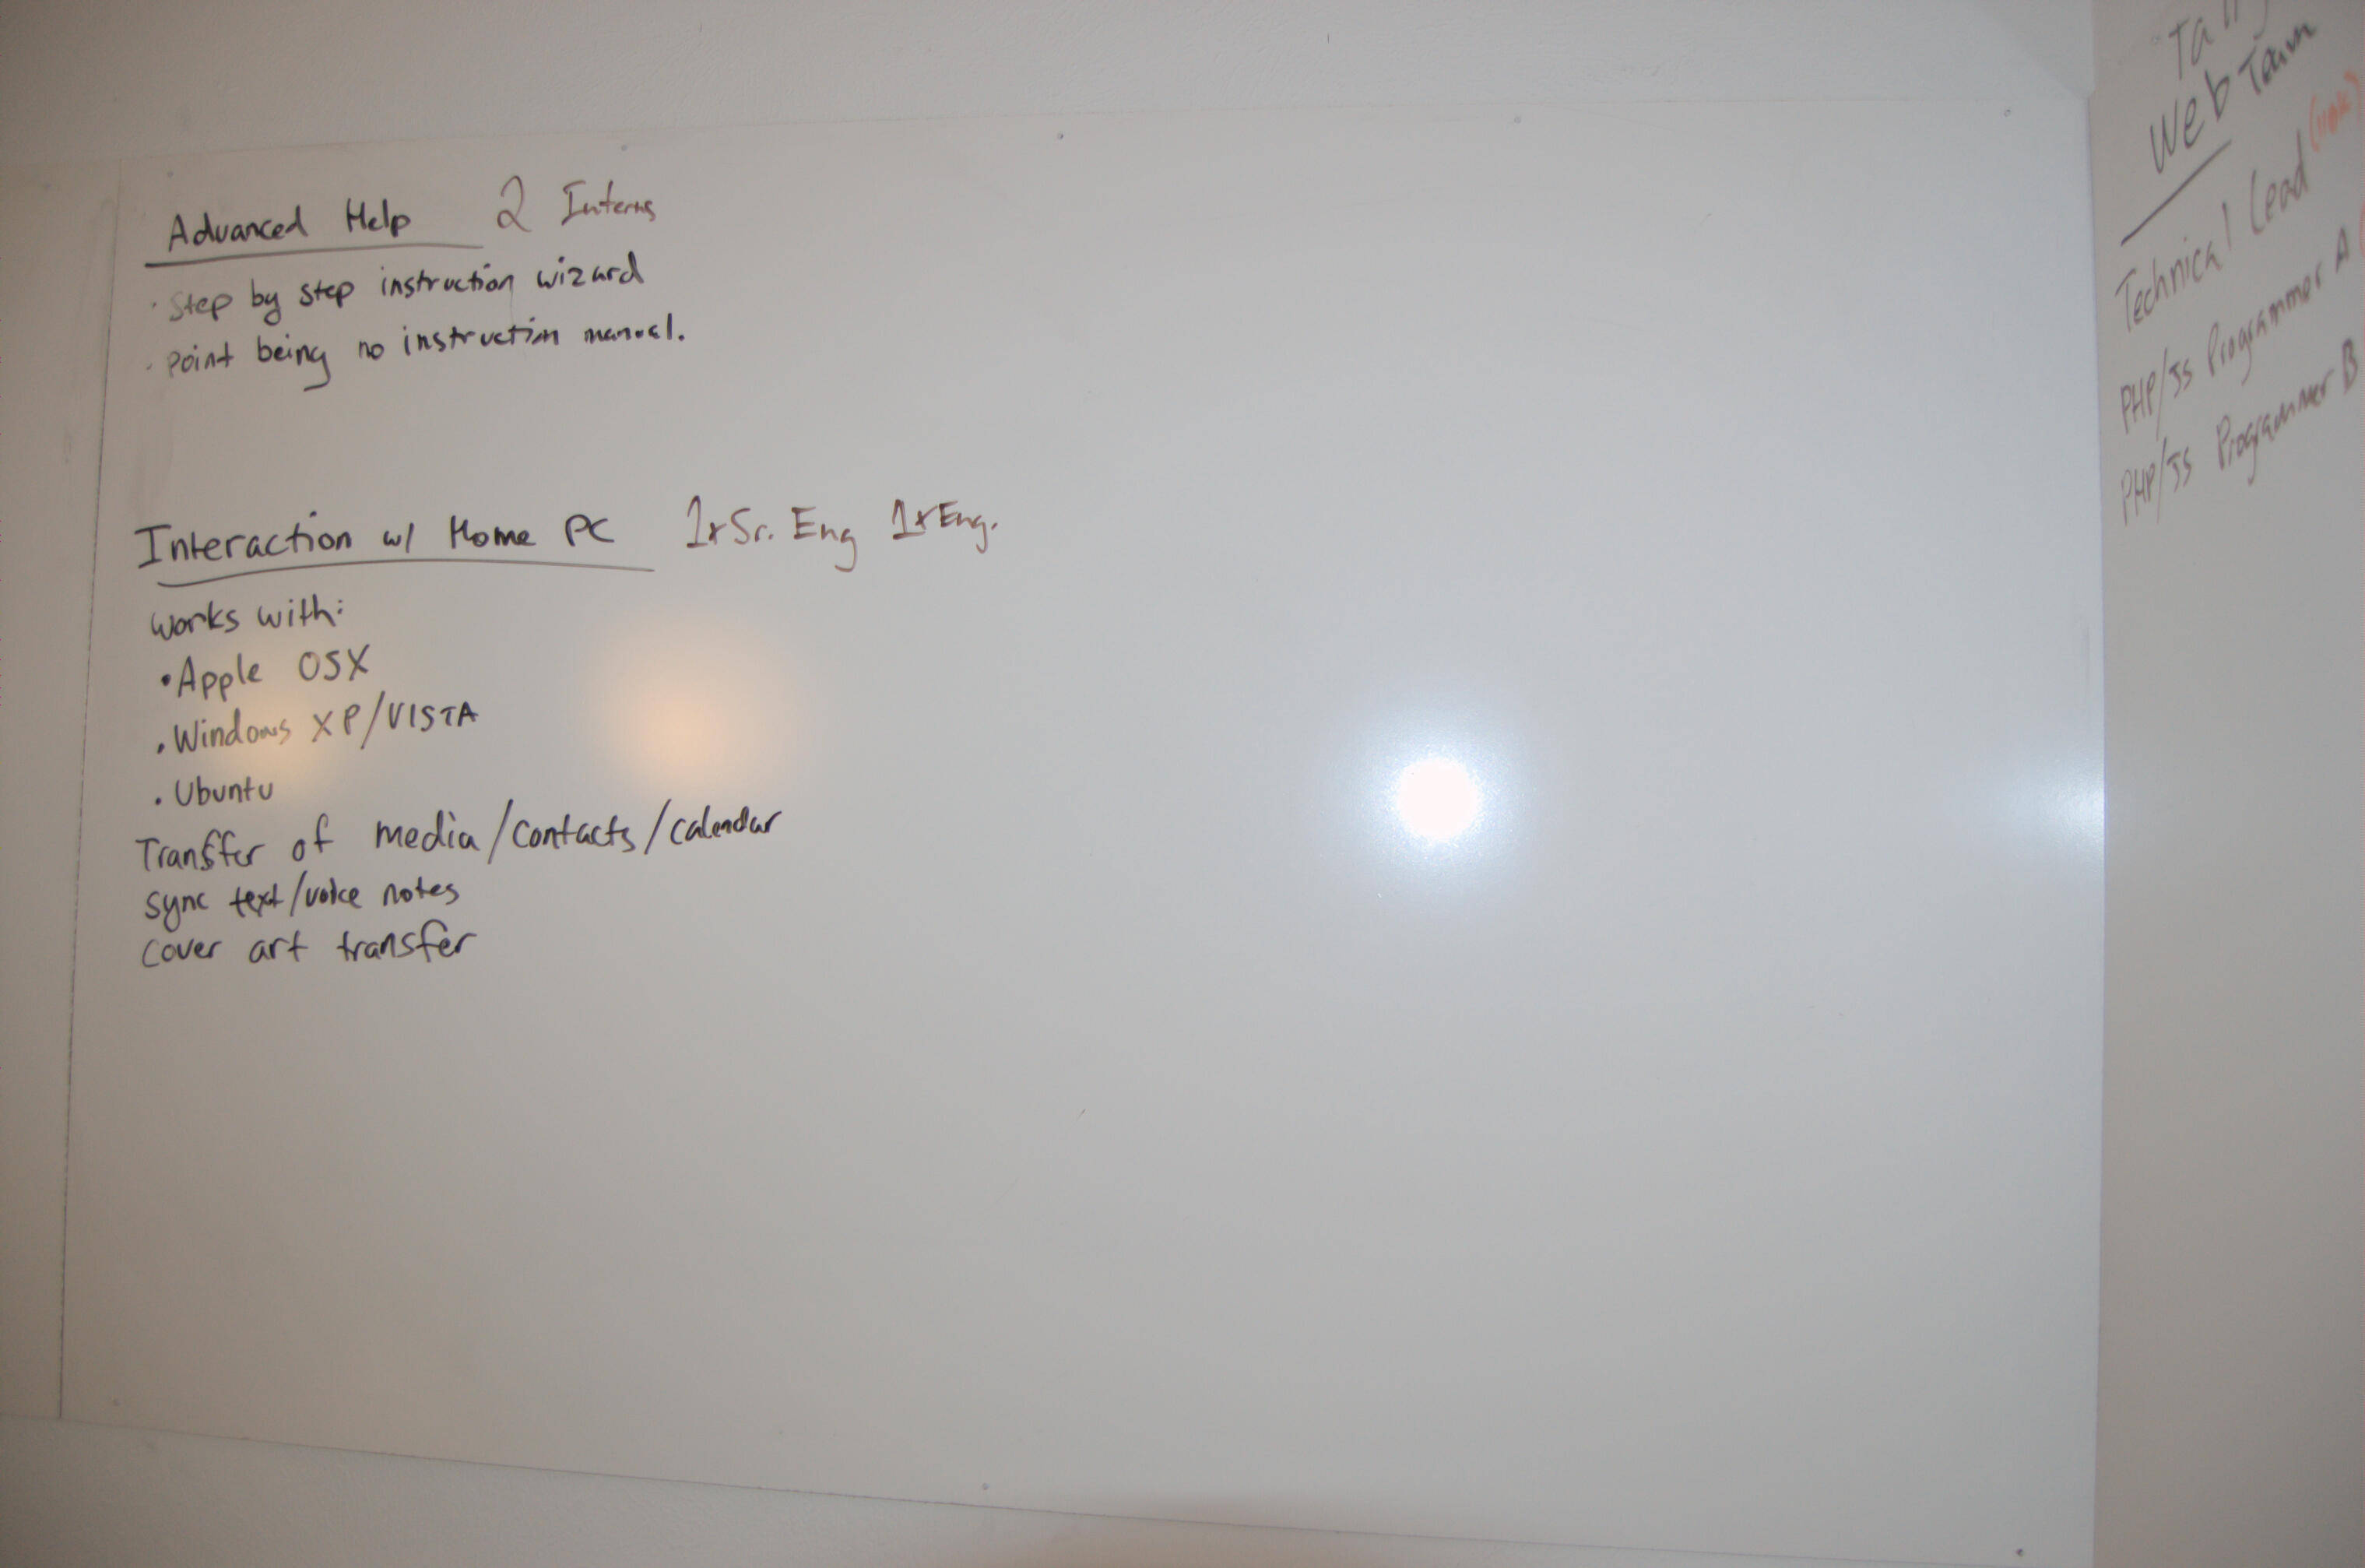 Advanced Help 2 Interns
· Step by step instruction wizard
· point being no instruction manual.
Interaction w/ Home PC 1xSr. Eng 1xEng.
works with:
• Apple OSX
• Windows XP/VISTA
• Ubuntu
Transfer of media/contacts/calendar
Sync text/voice notes
Cover art transfer
Web Team
Technical Lead
PHP/JS Programmer A
PHP/JS Programmer B